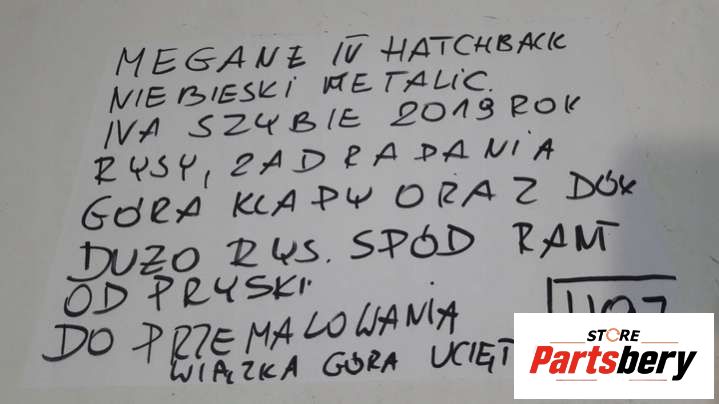 MEGANE IV HATCHBACK
NIEBIESKI METALIC.
NA SZYBIE 2019 ROK
RYSY, ZADRAPANIA
GÓRA KLAPY ORAZ DÓŁ
DUŻO RYS. SPÓD RANT
ODPRYSKI
DO PRZEMALOWANIA
WIĄZKA GÓRA UCIĘT
STORE
Partsbery